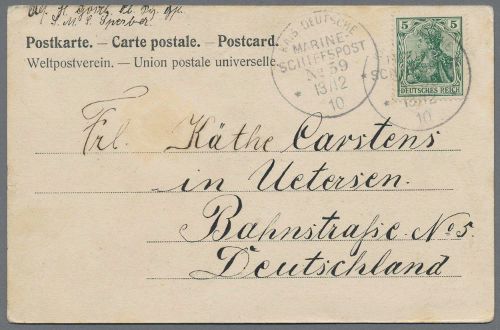 S. M. S. Sperber.
Postkarte. — Carte postale. — Postcard.
Weltpostverein. — Union postale universelle.
KAIS. DEUTSCHE
MARINE-
SCHIFFSPOST
No 59
* 13/12 *
10
5 5
DEUTSCHES REICH
13/12
10
Frl. Käthe Carstens
in Uetersen.
Bahnstraße No 5.
Deutschland